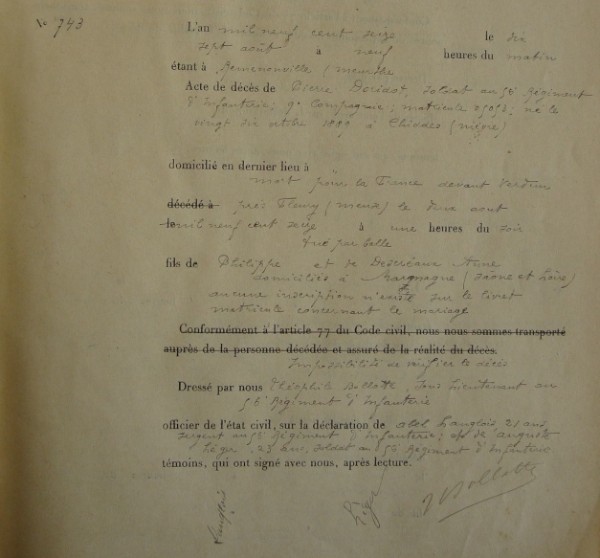 No 743
L'an mil neuf cent seize le dix
sept août à neuf heures du matin
étant à (Meurthe
Acte de décès de Pierre soldat au 56e Régiment
d'Infanterie; 9e Compagnie; matricule né le
vingt six 1889 à Chiddes (Nièvre)
domicilié en dernier lieu à
mort pour la France devant Verdun
décédé à près Fleury (Meuse) le douze aout
le mil neuf cent seize à une heures du soir
tué par balle
fils de Philippe et de Anne
domiciliés à (Saône et Loire)
aucune inscription n'existe sur le livret
matricule concernant le mariage
Conformément à l'article 77 du Code civil, nous nous sommes transporté
auprès de la personne décédée et assuré de la réalité du décès.
Impossibilité de vérifier le décès
Dressé par nous Théophile Bollotte, sous lieutenant au
56e Régiment d'Infanterie
officier de l'état civil, sur la déclaration de abel Langlois, 21 ans,
sergent au 56e Régiment d'Infanterie; et de auguste
Léger, 23 ans, soldat au 56e Régiment d'Infanterie
témoins, qui ont signé avec nous, après lecture.
Langlois Léger Bollotte